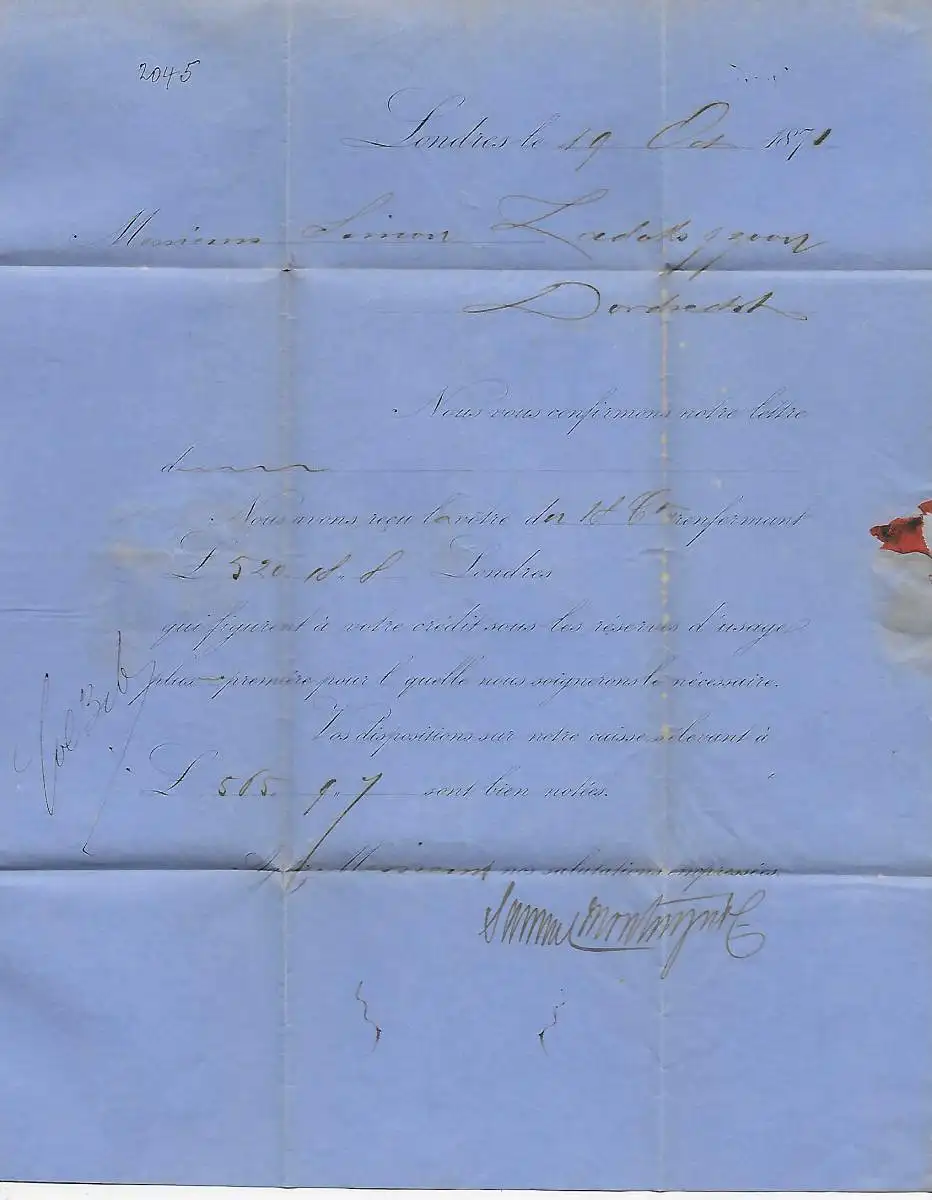 2045
Londres le 19 Oct 1871
Messieurs Simon Zadoks
Dordrecht
Nous vous confirmons notre lettre
d
Nous avons reçu la vôtre du 18 Ct renfermant
L 520. 18. 8 Londres
qui figurent à votre crédit sous les réserves d'usage
plus première pour l quelle nous soignerons le nécessaire.
Vos dispositions sur notre caisse s'élevant à
L 565. 9. 7 sont bien notées.
Messieurs nos salutations empressées
Samuel Montagu & C